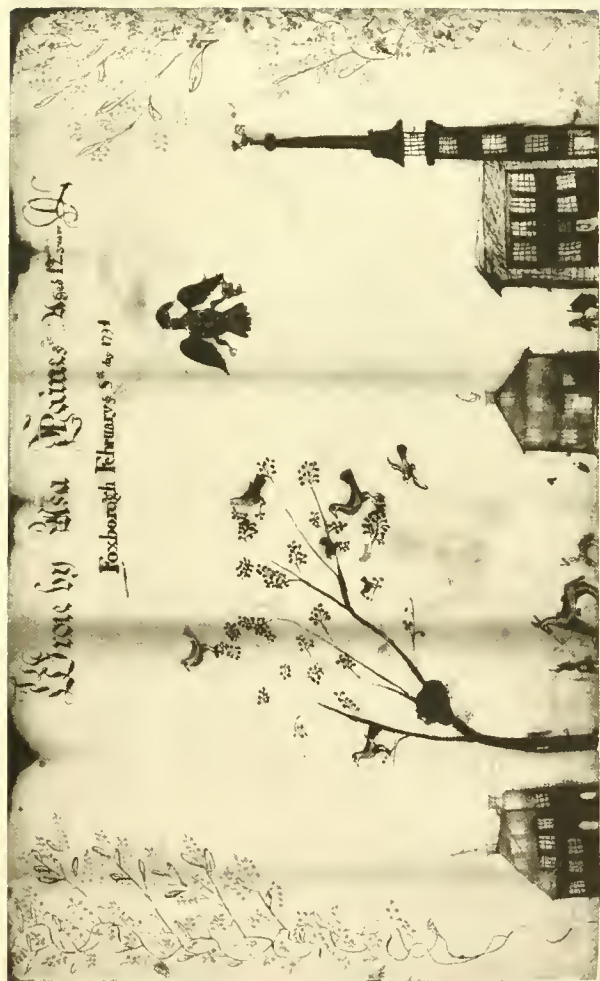 Wrote by Asa Paines Aged 12 years
Foxborogh February ye 8th day 1794